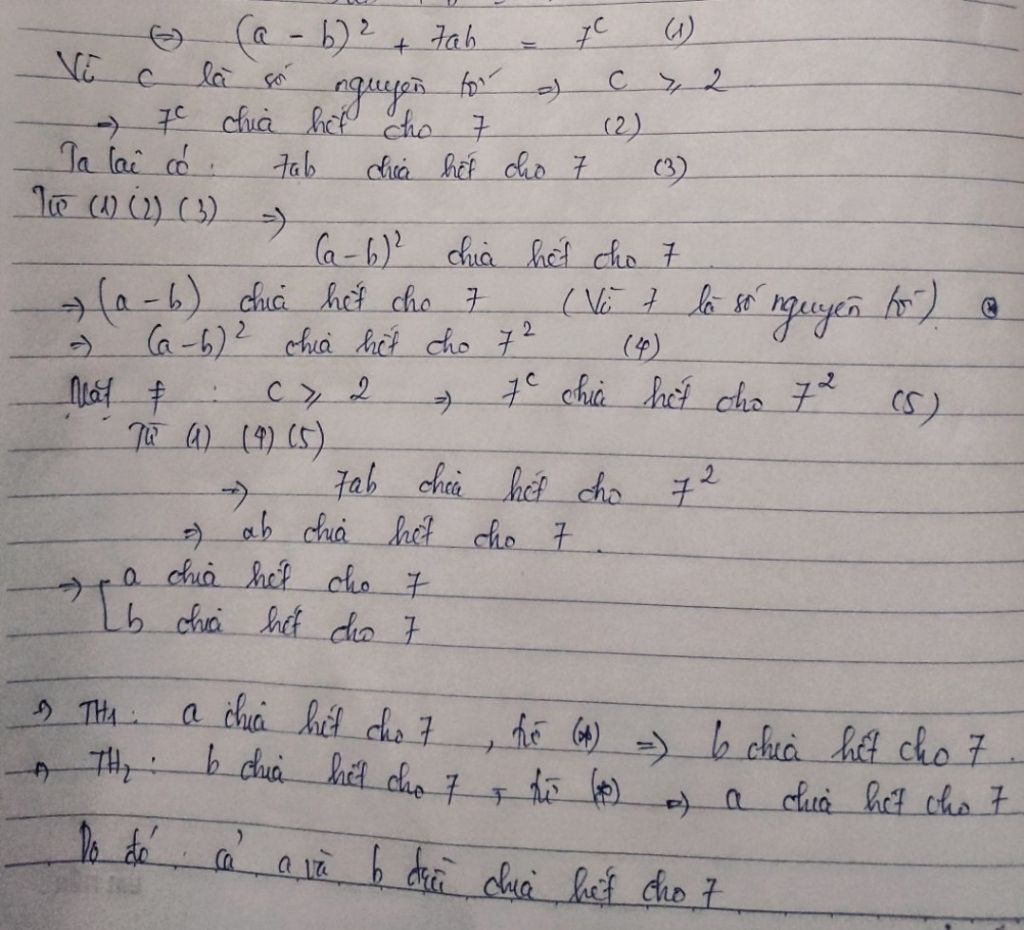 ⇔ (a - b)² + 7ab = 7ᶜ (1)
Vì c là số nguyên tố ⇒ c ⩾ 2
⇒ 7ᶜ chia hết cho 7 (2)
Ta lại có : 7ab chia hết cho 7 (3)
Từ (1) (2) (3) ⇒
(a-b)² chia hết cho 7
⇒ (a - b) chia hết cho 7 (Vì 7 là số nguyên tố)
⇒ (a-b)² chia hết cho 7² (4)
Mặt ≠ : c ⩾ 2 ⇒ 7ᶜ chia hết cho 7² (5)
Từ (1) (4) (5)
⇒ 7ab chia hết cho 7²
⇒ ab chia hết cho 7.
⇒ [ a chia hết cho 7
b chia hết cho 7
⇒ TH1: a chia hết cho 7, từ (*) ⇒ b chia hết cho 7.
⇒ TH2: b chia hết cho 7, từ (*) ⇒ a chia hết cho 7
Do đó, cả a và b đều chia hết cho 7